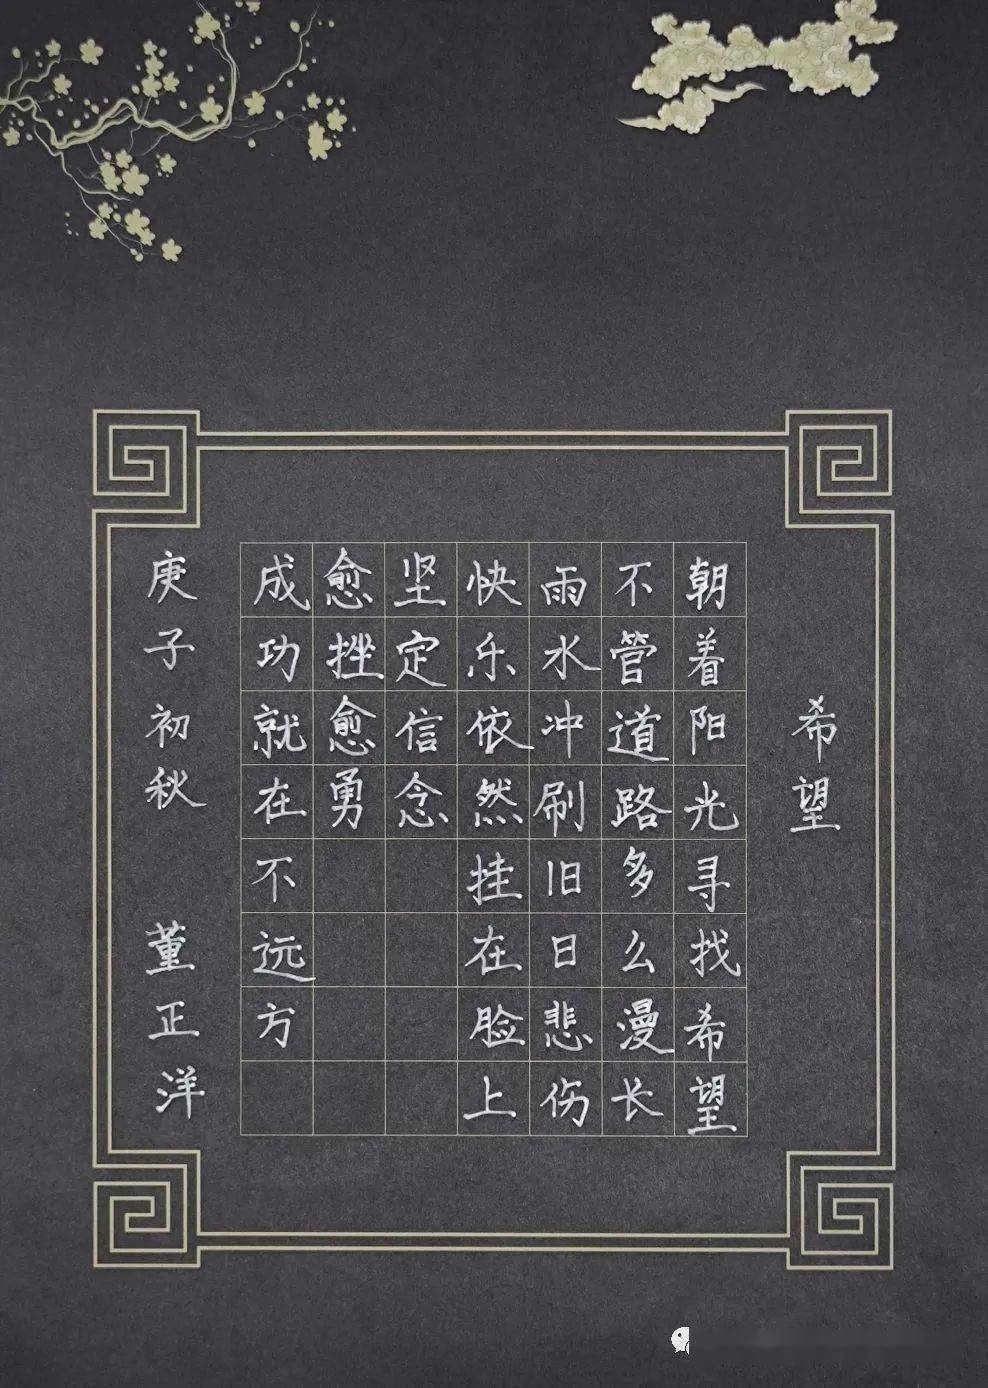 希望
朝着阳光寻找希望
不管道路多么漫长
雨水冲刷旧日悲伤
快乐依然挂在脸上
坚定信念
愈挫愈勇
成功就在不远方
庚子初秋 董正洋